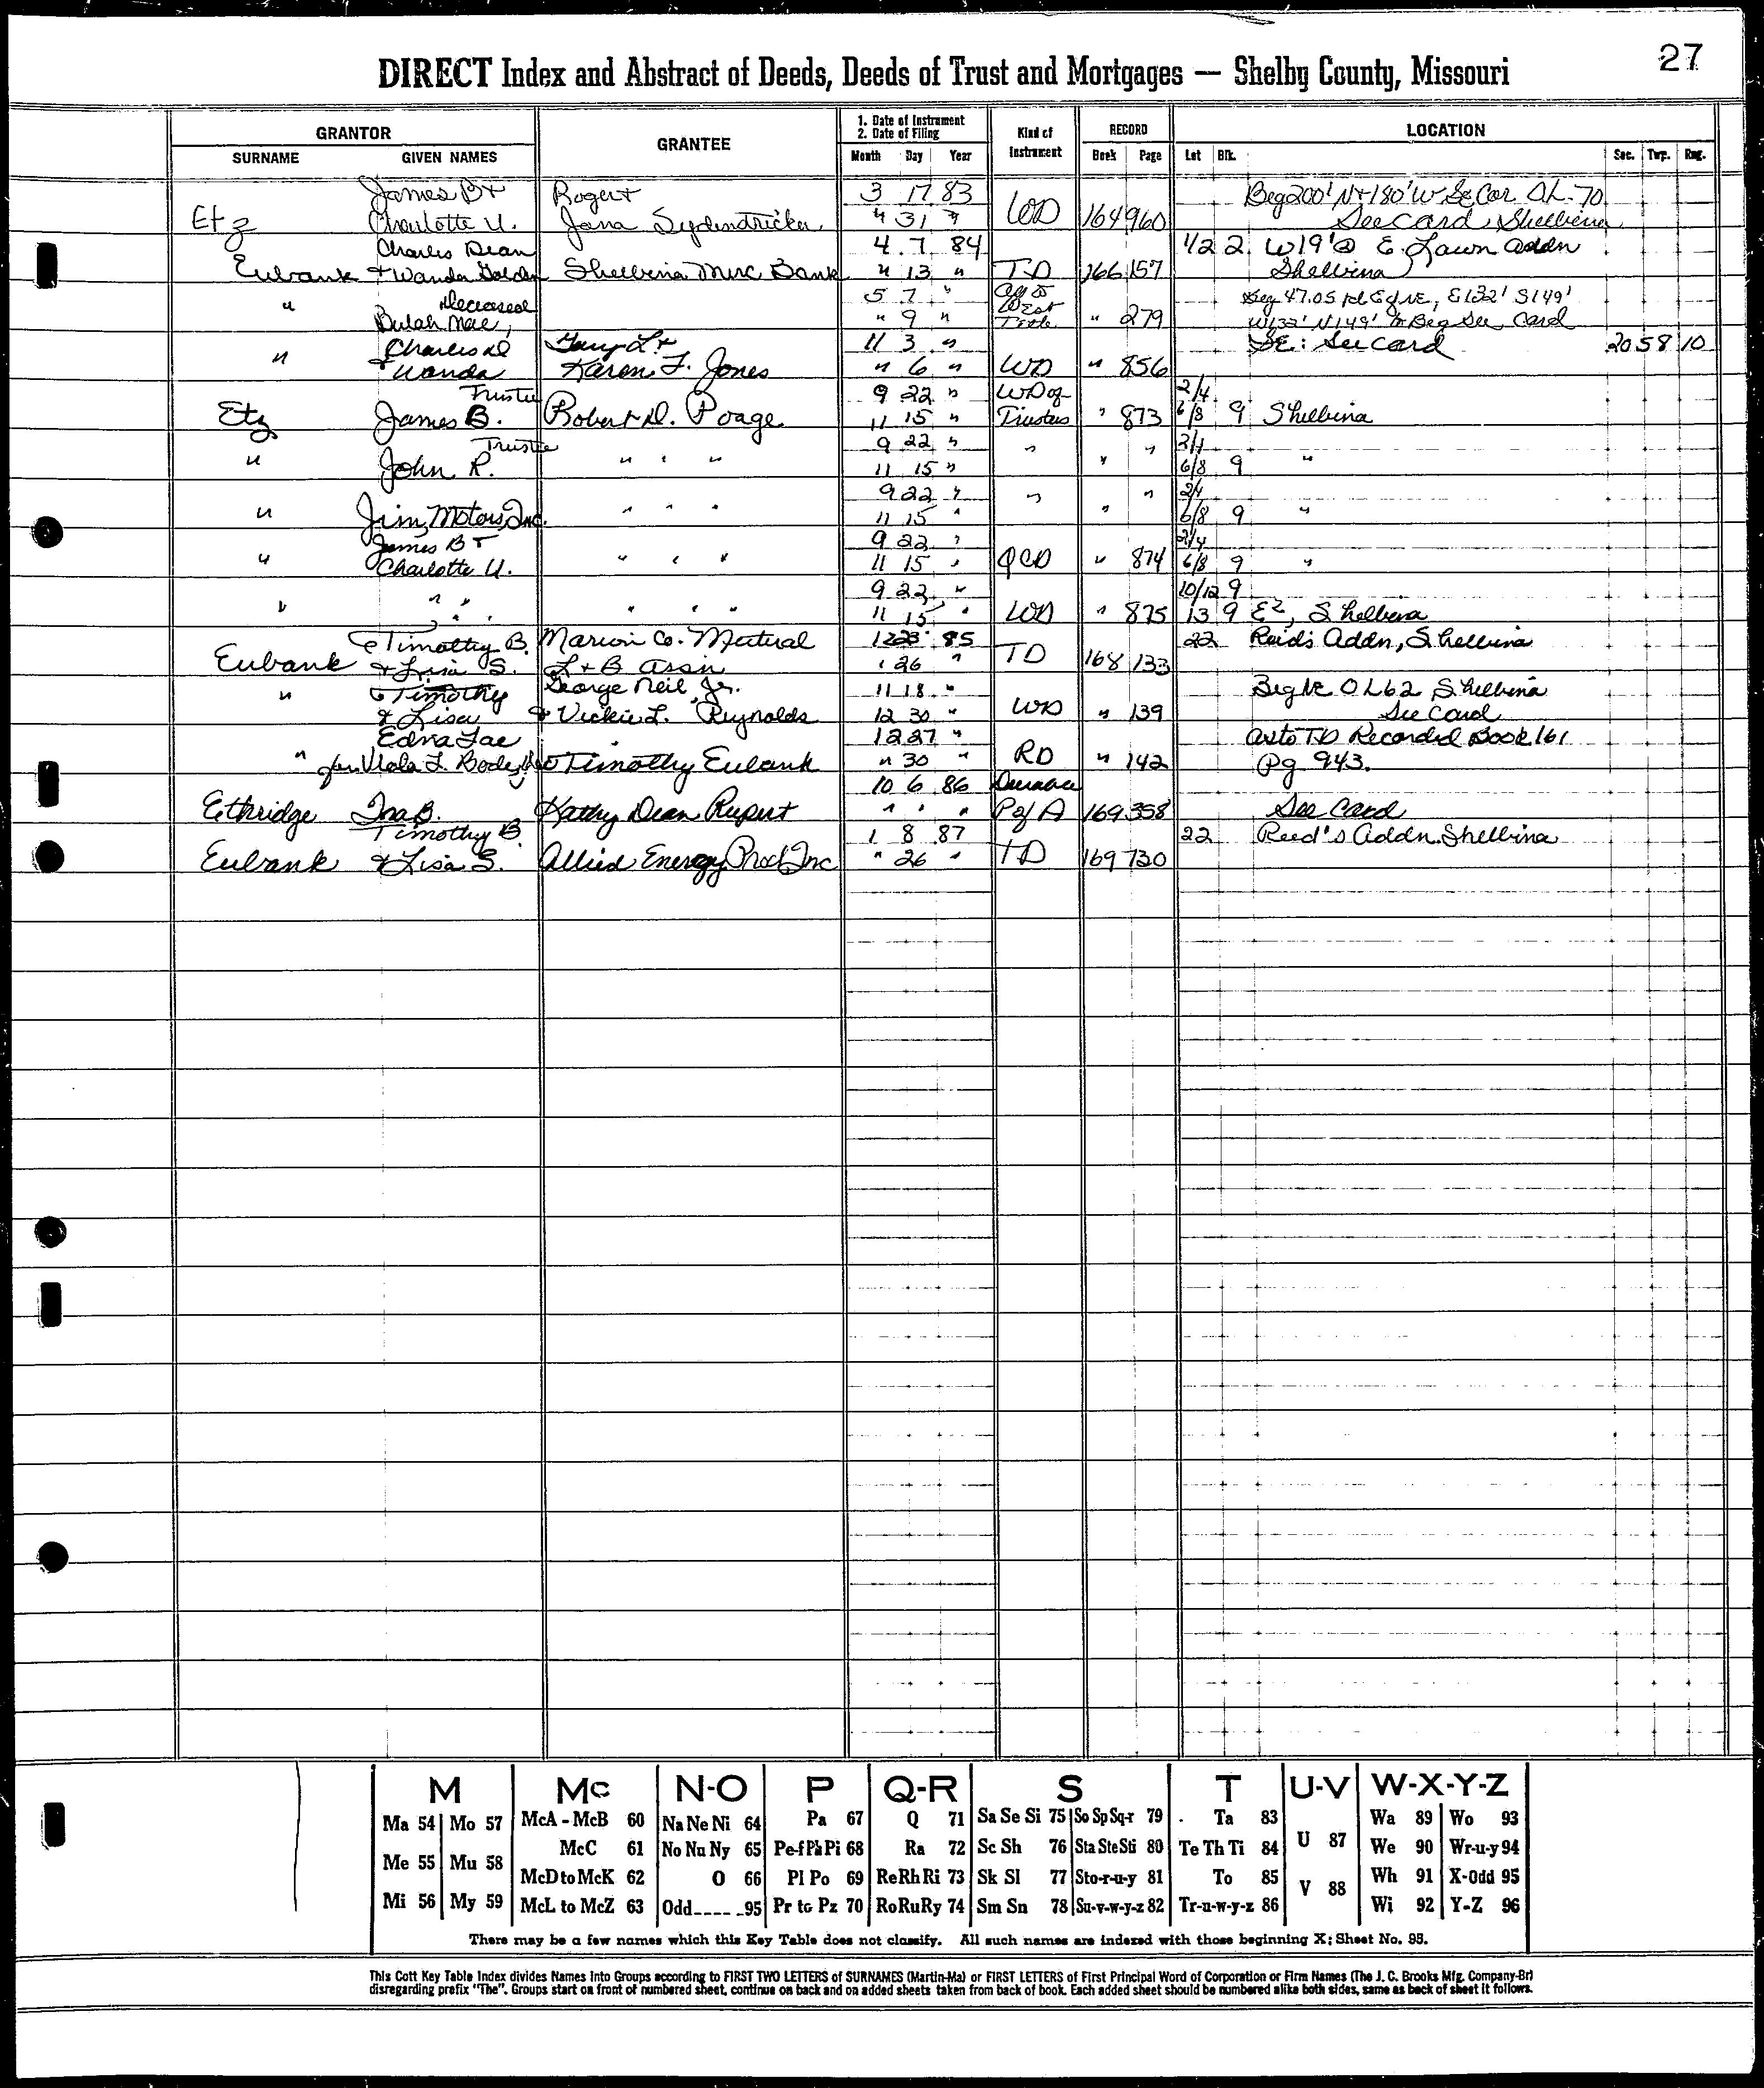 27
DIRECT Index and Abstract of Deeds, Deeds of Trust and Mortgages — Shelby County, Missouri
GRANTOR GRANTEE 1. Date of Instrument 2. Date of Filing Kind of Instrument RECORD LOCATION
SURNAME GIVEN NAMES Month Day Year Book Page Lot Blk. Sec. Twp. Rng.
James B + Roger + 3 17 83 Beg 200' N + 180' W Se Cor OL-70
Etz Charlotte U. Jana Sydenstricker " 31 " WD 164 960 See Card Shelbina
Charles Dean 4 7 84 1/2 2 W19' E. Lawn Addn
Eubank + Wanda Golden Shelbina Merc Bank " 13 " TD 166 157 Shelbina
" Deceased 5 7 " Beg 47.05 E of NE, E132' S149'
Bulah Mae, " 9 " Title " 279 W132' N149' to Beg See Card
Charles D Gary L + 11 3 " SE: See Card 20 58 10
" + Wanda Karen F. Jones " 6 " WD " 856
Trustee 9 22 " WD of 2/4
Etz James B. Robert D. Poage 11 15 " Trustees " 873 6/8 9 Shelbina
Trustee 9 22 " " 2/4
" John R. " " " 11 15 " " " 6/8 9 "
9 22 " " " 2/4
" Jim Motors, Inc. " " " 11 15 " " 6/8 9 "
James B + 9 22 " 2/4
" Charlotte U. " " " 11 15 " QCD " 874 6/8 9 "
9 22 " 10/12 9
" " " " " " 11 15 " WD " 875 13 9 E2, Shelbina
Timothy B. Marion Co. Mutual 12 23 85 22 Reid's Addn, Shelbina
Eubank + Lisa S. L + B Assn " 26 " TD 168 133
" Timothy George Neil, Jr. 11 18 " Beg NE OL 62 Shelbina
+ Lisa + Vickie L. Reynolds 12 30 " WD " 139 See Card
Edna Fae 12 27 " as to TD Recorded Book 161
" for Viola L. Timothy Eubank " 30 " RD " 142 Pg 943.
10 6 86 Durable
Ethridge Ina B. Kathy Dean Rupert " " " P of A 169 358 See Card
Timothy B. 1 8 87 22 Reed's Addn. Shelbina
Eubank + Lisa S. Allied Energy Prod, Inc " 26 " TD 169 730
M Mc N-O P Q-R S T U-V W-X-Y-Z
Ma 54 Mo 57 McA - McB 60 Na Ne Ni 64 Pa 67 Q 71 Sa Se Si 75 So Sp Sq-r 79 Ta 83 U 87 Wa 89 Wo 93
McC 61 No Nu Ny 65 Pe-f Ph Pi 68 Ra 72 Sc Sh 76 Sta Ste Sti 80 Te Th Ti 84 We 90 Wr-u-y 94
Me 55 Mu 58 McD to McK 62 O 66 Pl Po 69 Re Rh Ri 73 Sk Sl 77 Sto-r-u-y 81 To 85 V 88 Wh 91 X-Odd 95
Mi 56 My 59 McL to McZ 63 Odd 95 Pr to Pz 70 Ro Ru Ry 74 Sm Sn 78 Su-v-w-y-z 82 Tr-u-w-y-z 86 Wi 92 Y-Z 96
There may be a few names which this Key Table does not classify. All such names are indexed with those beginning X; Sheet No. 95.
This Cott Key Table Index divides Names into Groups according to FIRST TWO LETTERS of SURNAMES (Martin-Ma) or FIRST LETTERS of First Principal Word of Corporation or Firm Names (The J. C. Brooks Mfg. Company-Br)
disregarding prefix "The". Groups start on front of numbered sheet, continue on back and on added sheets taken from back of book. Each added sheet should be numbered alike both sides, same as back of sheet it follows.